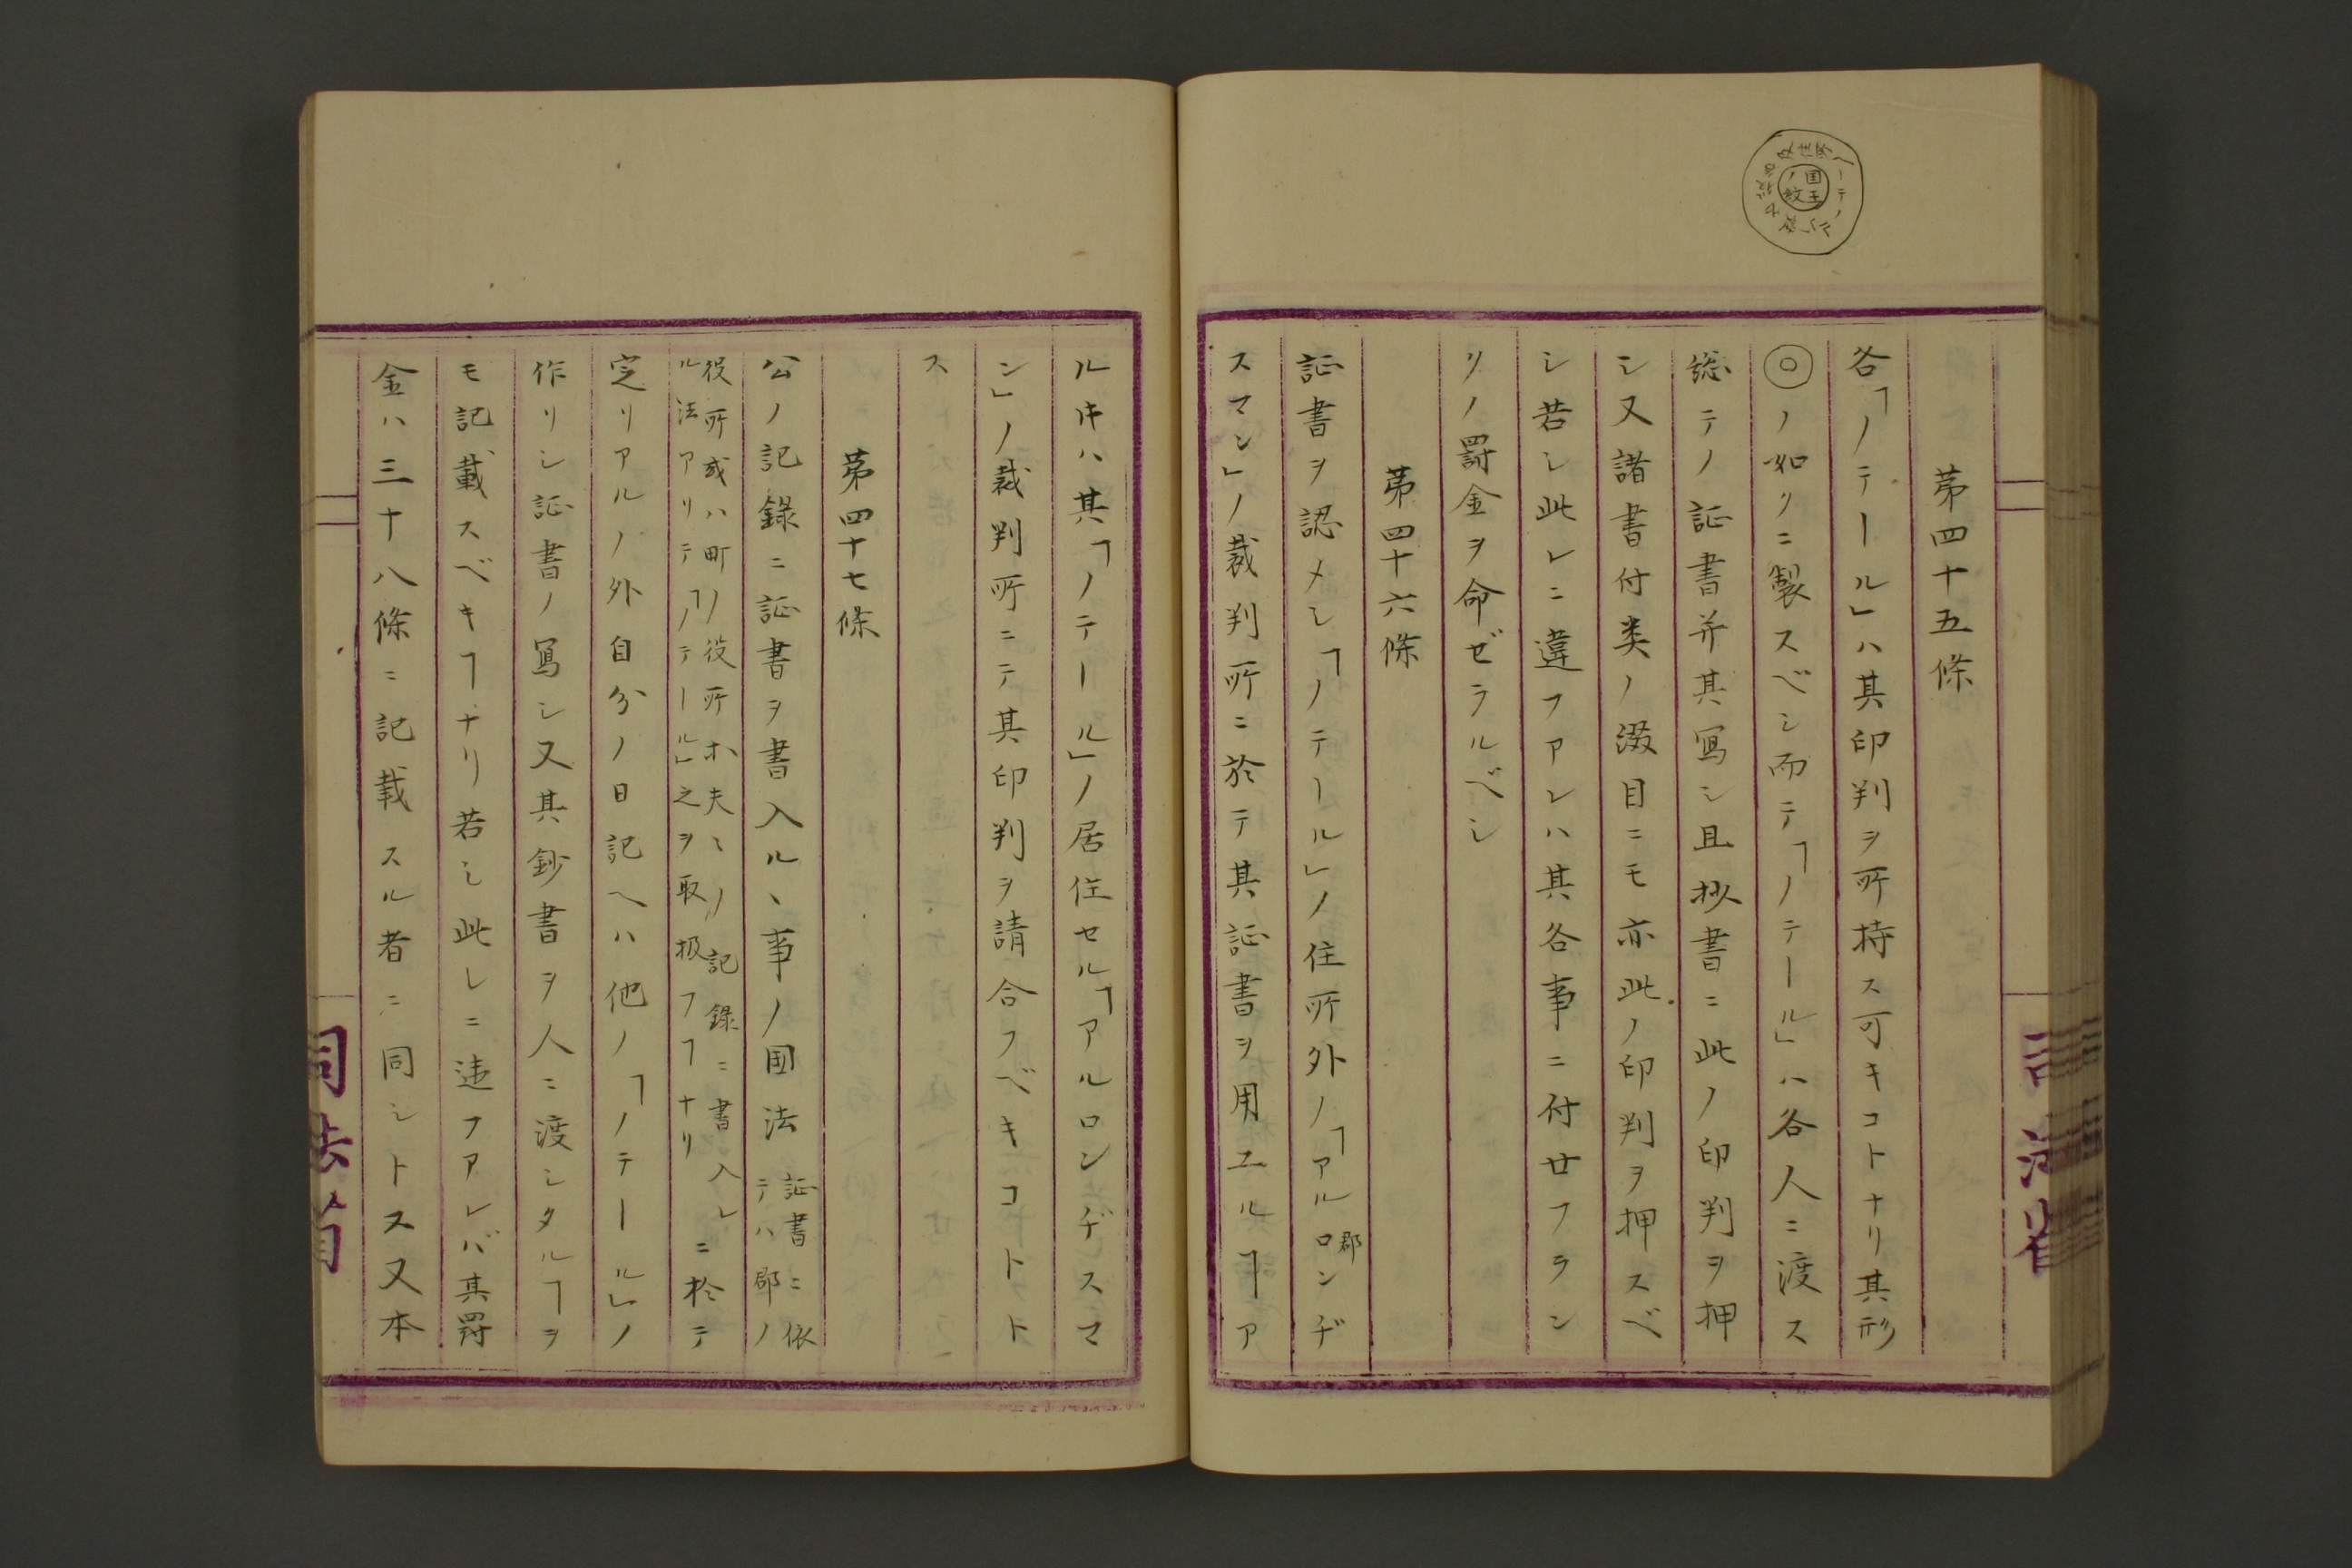 第四十五條
各「ノテール」ハ其印判ヲ所持ス可キコトナリ其形
◎ノ如クニ製スベシ而テ「ノテール」ハ各人ニ渡ス
総テノ証書并其寫シ且抄書ニ此ノ印判ヲ押
シ又諸書付类ノ綴目ニモ亦此ノ印判ヲ押スベ
シ若シ此レニ違フアレハ其各事ニ付廿フラン
リノ罰金ヲ命ゼラルベシ
第四十六條
証書ヲ認メシ「ノテール」ノ住所外ノ「アルロンヂ
郡
スマン」ノ裁判所ニ於テ其証書ヲ用ユルヿア
国王
ノ紋
ルキハ其「ノテール」ノ居住セル「アルロンヂスマ
ン」ノ裁判所ニテ其印判ヲ請合フベキコトト
ス
第四十七條
公ノ記録ニ証書ヲ書入ルヽ事ノ国法
証書ニ依
テハ郡ノ
役所或ハ町ノ役所ホ夫〻ノ記録ニ書入レ
ル法アリテ「ノテール」之ヲ取扱フヿナリ
ニ於テ
定リアルノ外自分ノ日記ヘハ他ノ「ノテール」ノ
作リシ証書ノ寫シ又其鈔書ヲ人ニ渡シタルヿヲ
モ記載スベキヿナリ若シ此レニ違フアレバ其罸
金ハ三十八條ニ記載スル者ニ同シトス又本
司法省